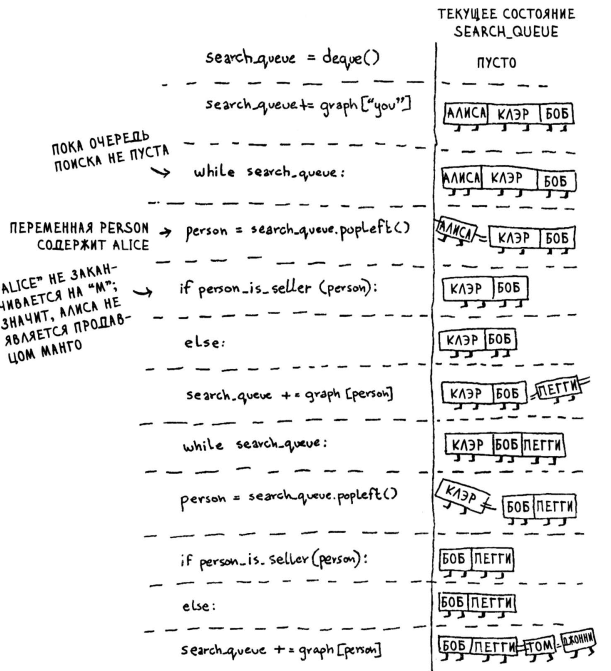 ТЕКУЩЕЕ СОСТОЯНИЕ
SEARCH_QUEUE
search_queue = deque()
ПУСТО
search_queue += graph["you"]
АЛИСА КЛЭР БОБ
ПОКА ОЧЕРЕДЬ
ПОИСКА НЕ ПУСТА
while search_queue:
АЛИСА КЛЭР БОБ
ПЕРЕМЕННАЯ PERSON
СОДЕРЖИТ ALICE
person = search_queue.popleft()
АЛИСА КЛЭР БОБ
ALICE" НЕ ЗАКАН-
ЧИВАЕТСЯ НА "М";
ЗНАЧИТ, АЛИСА НЕ
ЯВЛЯЕТСЯ ПРОДАВ-
ЦОМ МАНГО
if person_is_seller (person):
КЛЭР БОБ
else:
КЛЭР БОБ
search_queue += graph [person]
КЛЭР БОБ ПЕГГИ
while search_queue:
КЛЭР БОБ ПЕГГИ
person = search_queue.popleft()
КЛЭР БОБ ПЕГГИ
if person_is_seller (person):
БОБ ПЕГГИ
else:
БОБ ПЕГГИ
search_queue += graph [person]
БОБ ПЕГГИ ТОМ ДЖОННИ